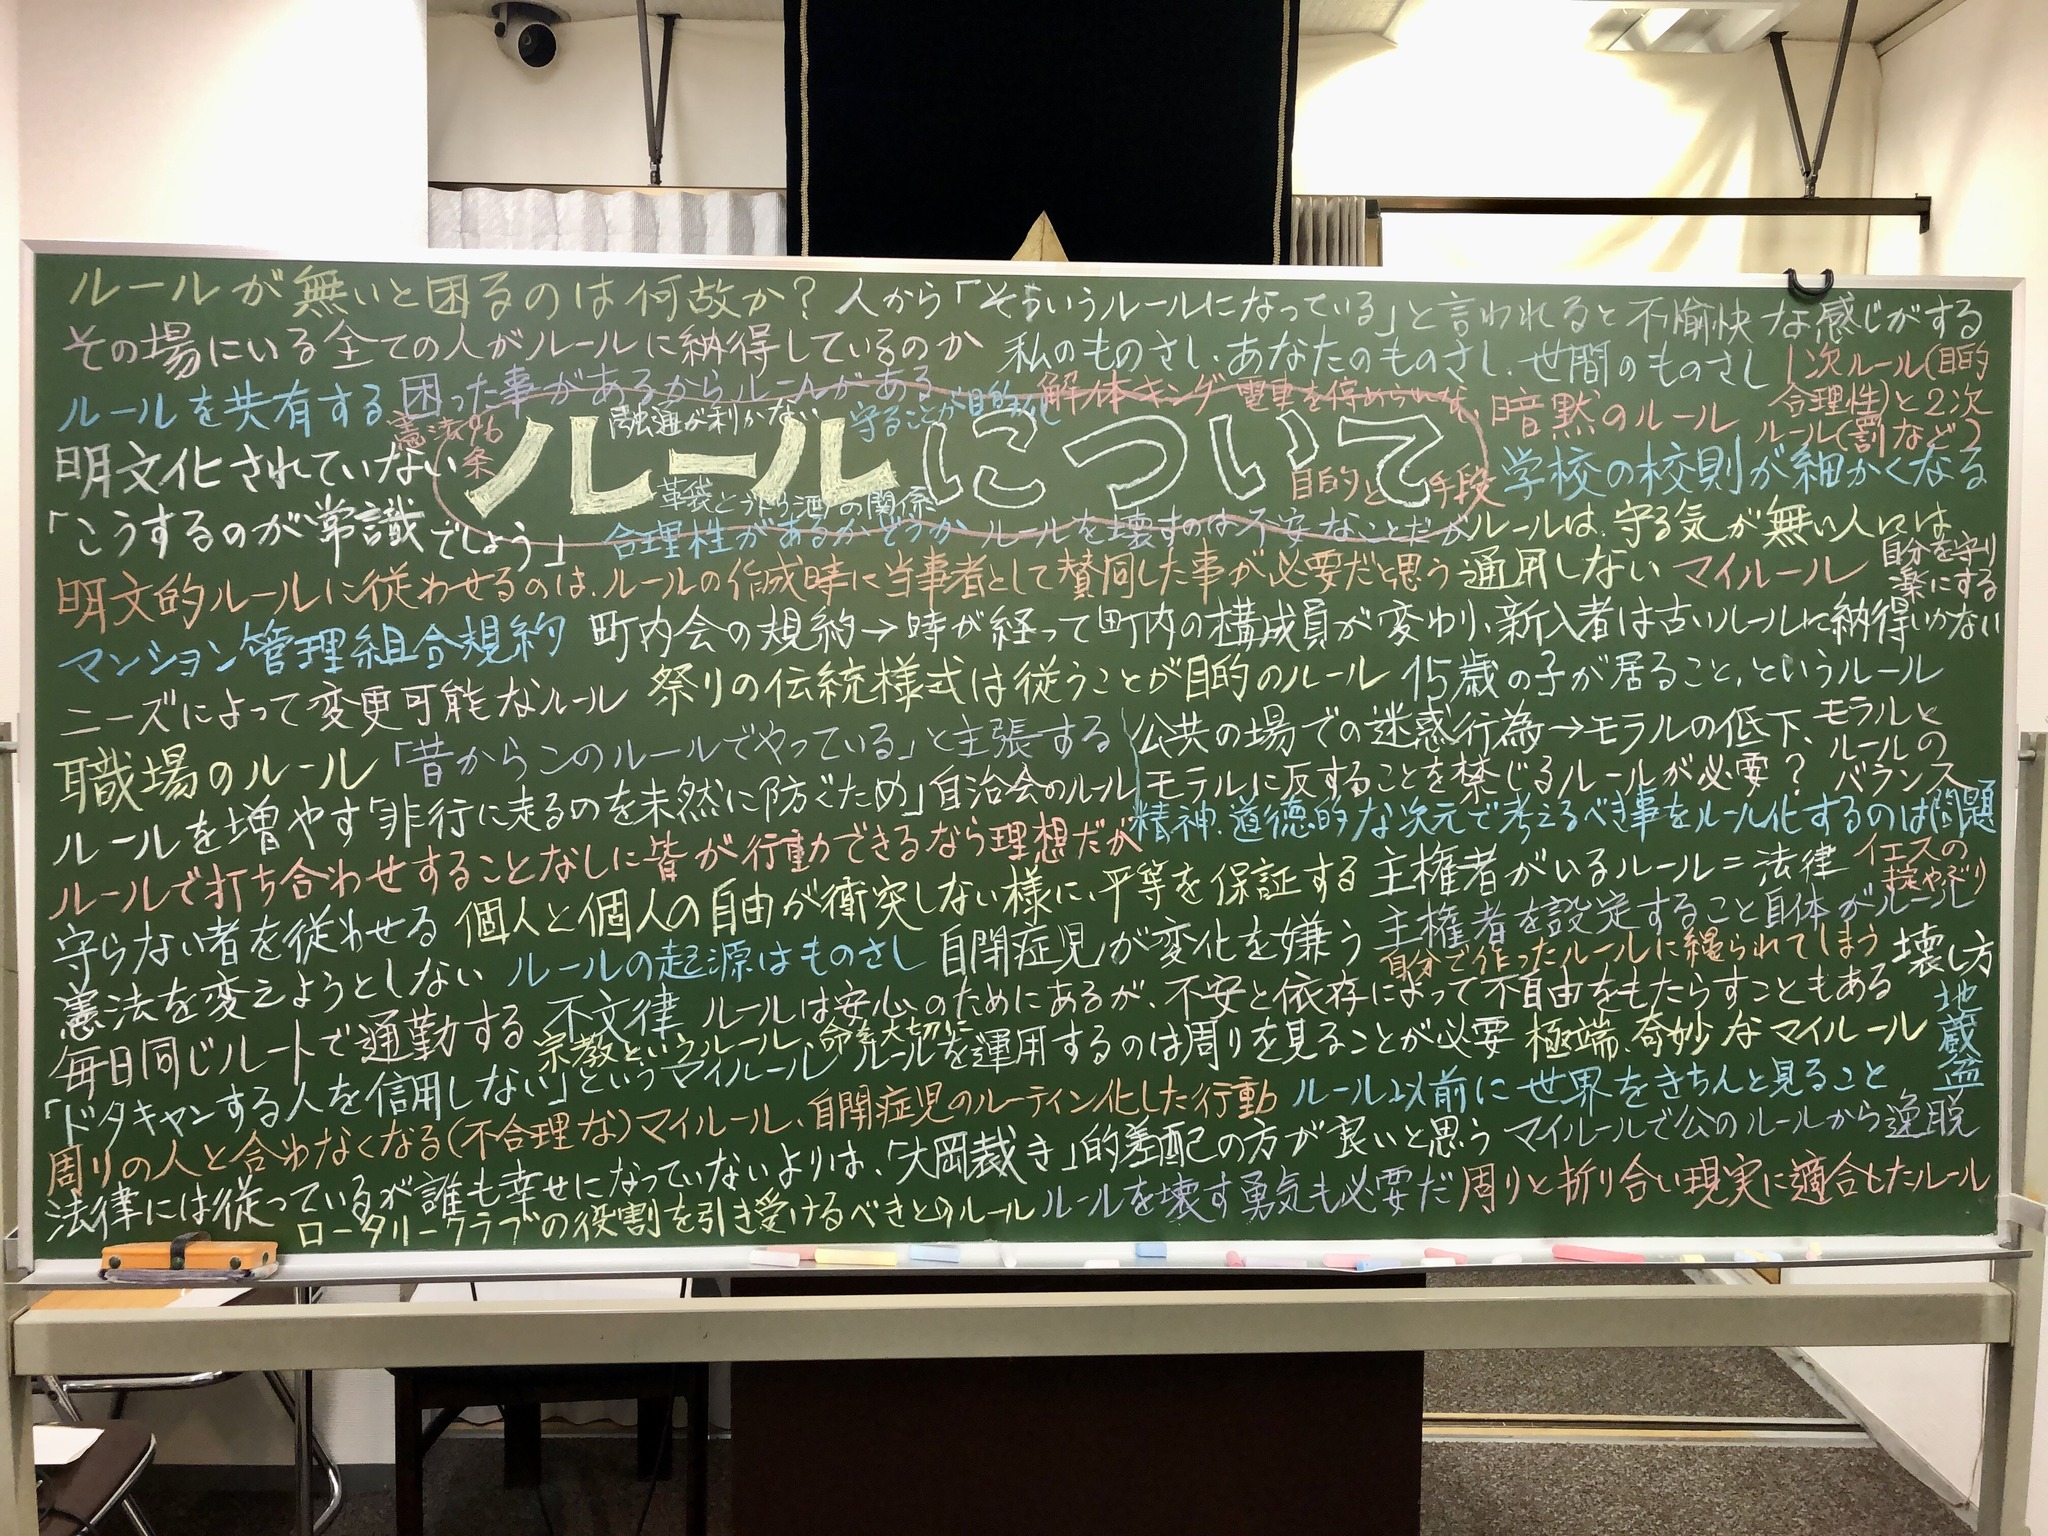 ルールが無いと困るのは何故か?
人から「そういうルールになっている」と言われると不愉快な感じがする
その場にいる全ての人がルールに納得しているのか
私のものさし、あなたのものさし、世間のものさし
1次ルール(目的
合理性)と2次
ルール(罰など)
ルールを共有する
困った事があるからルールがある
憲法96
条
融通が利かない
守ることが目的化
解体キング
電車を停められない
暗黙のルール
ルールについて
明文化されていない
革袋とブドウ酒の関係
目的と手段
学校の校則が細かくなる
「こうするのが常識でしょう」
合理性があるかどうか
ルールを壊すのは不安なことだが
ルールは、守る気が無い人には
通用しない
明文的ルールに従わせるのは、ルールの作成時に当事者として賛同した事が必要だと思う
マイルール
自分を守り
楽にする
マンション管理組合規約
町内会の規約→時が経って町内の構成員が変わり、新入者は古いルールに納得いかない
ニーズによって変更可能なルール
祭りの伝統様式は従うことが目的のルール
15歳の子が居ること、というルール
職場のルール
「昔からこのルールでやっている」と主張する
公共の場での迷惑行為→モラルの低下、
モラルと
ルールの
バランス
ルールを増やす「非行に走るのを未然に防ぐため」
自治会のルール
モラルに反することを禁じるルールが必要?
精神、道徳的な次元で考えるべき事をルール化するのは問題
ルールで打ち合わせすることなしに皆が行動できるなら理想だが
個人と個人の自由が衝突しない様に、平等を保証する
主権者がいるルール=法律
イエスの
掟やぶり
守らない者を従わせる
主権者を設定すること自体がルール
憲法を変えようとしない
ルールの起源はものさし
自閉症児が変化を嫌う
自分で作ったルールに縛られてしまう
壊し方
毎日同じルートで通勤する
不文律
ルールは安心のためにあるが、不安と依存によって不自由をもたらすこともある
地蔵盆
宗教というルール、命を大切に
ルールを運用するのは周りを見ることが必要
極端、奇妙なマイルール
「ドタキャンする人を信用しない」というマイルール
周りの人と合わなくなる(不合理な)マイルール、自閉症児のルーティン化した行動
ルール以前に世界をきちんと見ること
法律には従っているが誰も幸せになっていないよりは、「大岡裁き」的差配の方が良いと思う
マイルールで公のルールから逸脱
ロータリークラブの役割を引き受けるべきとのルール
ルールを壊す勇気も必要だ
周りと折り合い現実に適合したルール